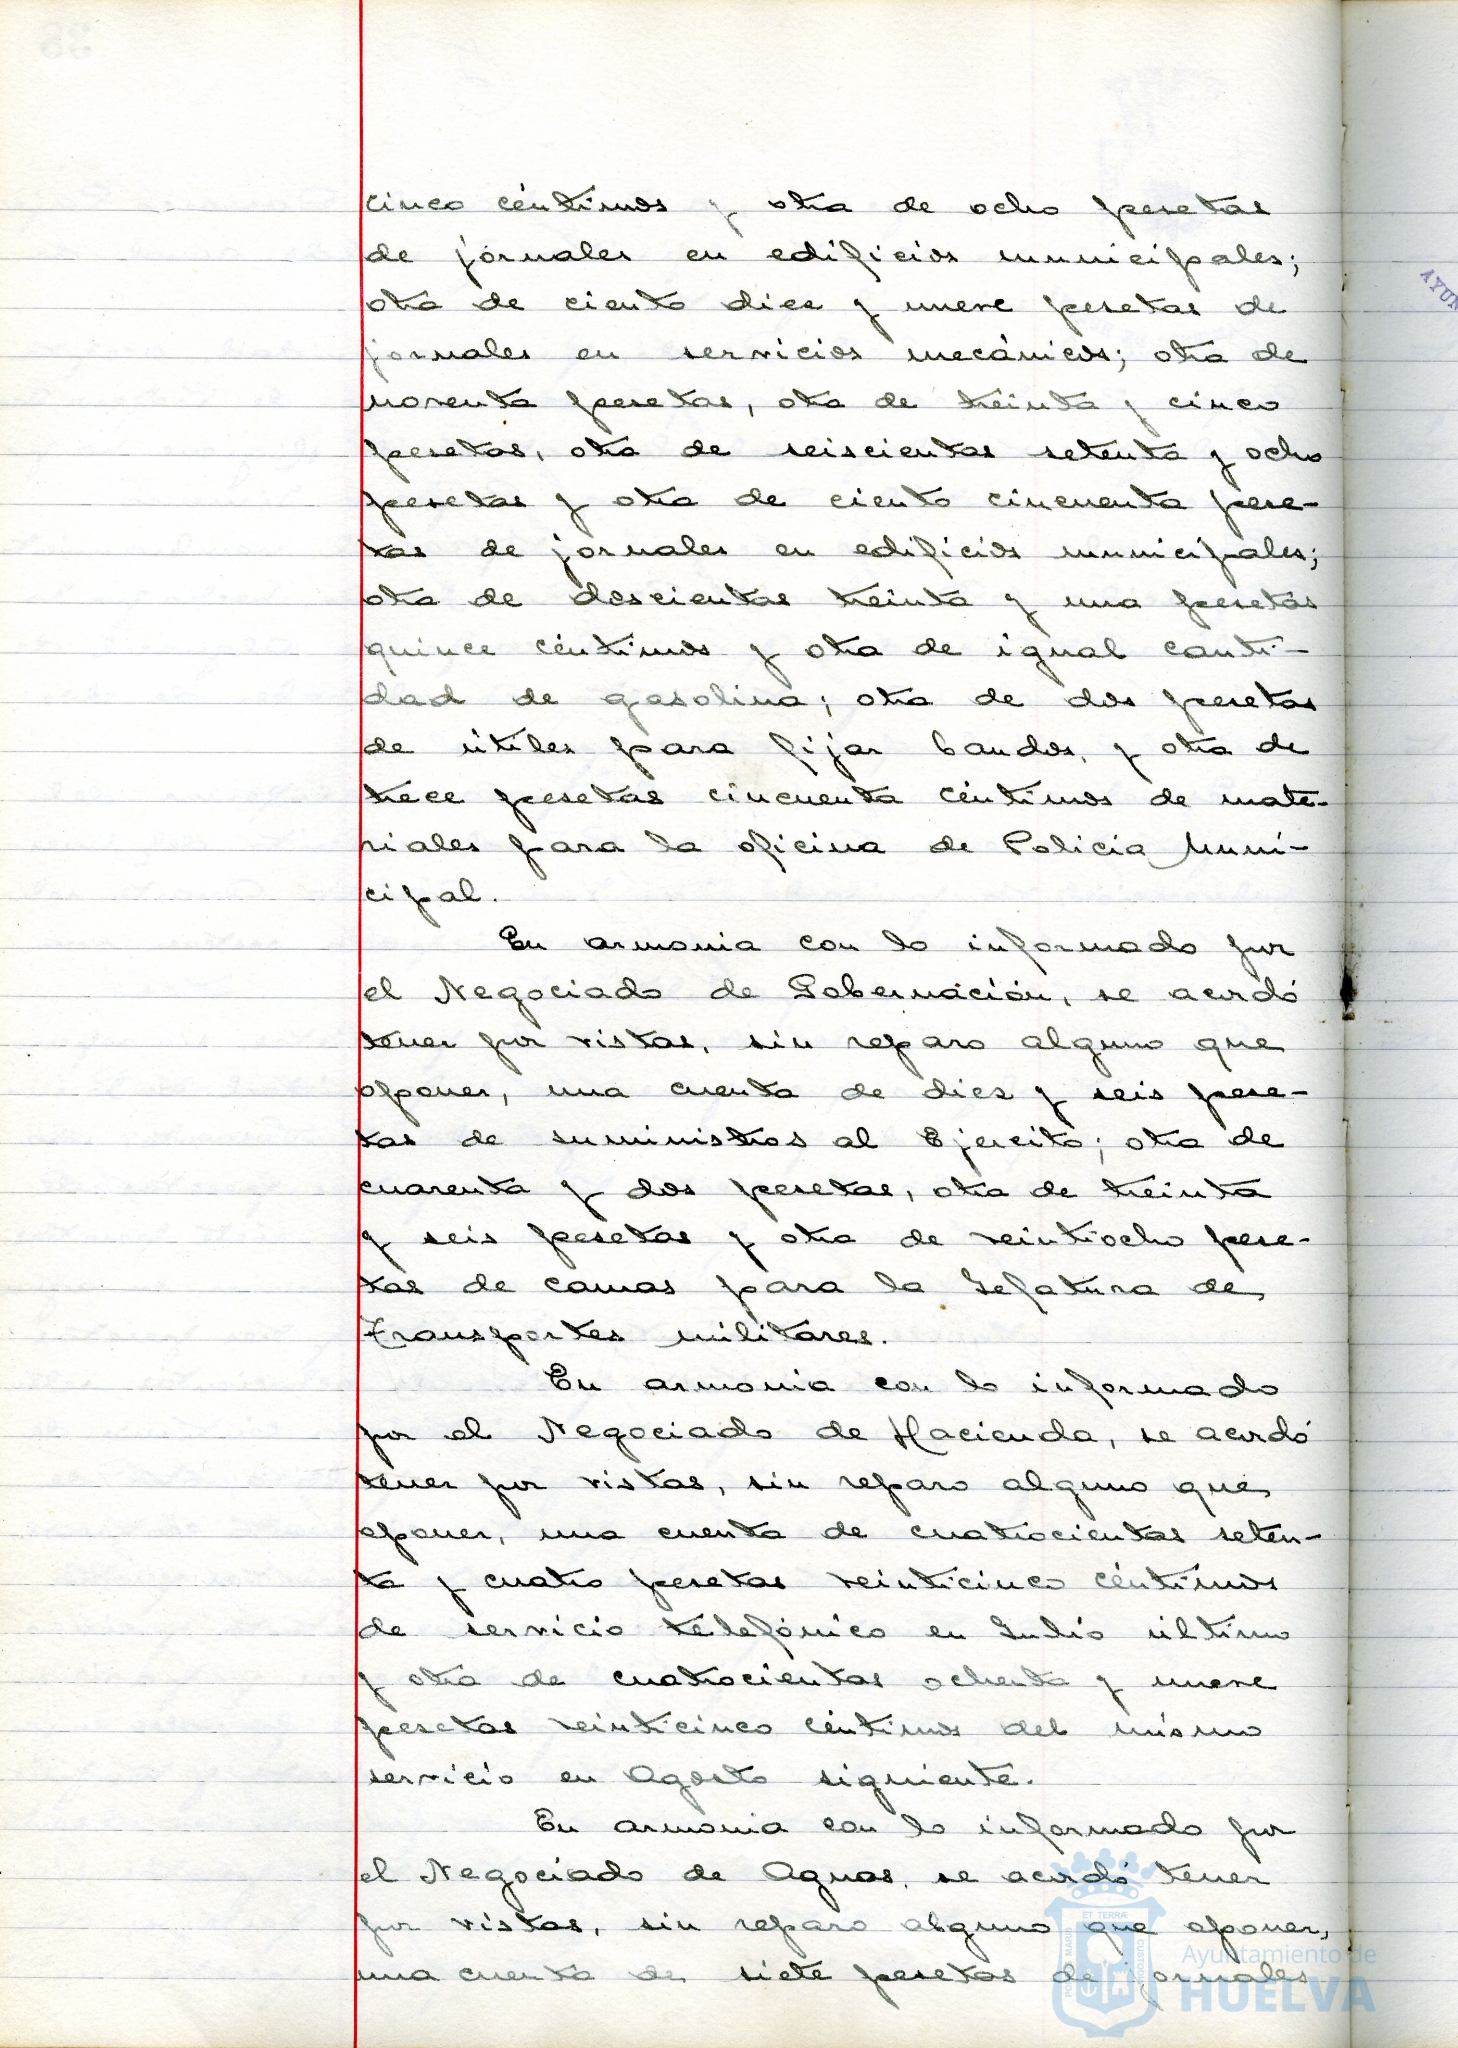 cinco céntimos y otra de ocho pesetas
de jornales en edificios municipales;
otra de ciento diez y nueve pesetas de
jornales en servicios mecánicos; otra de
noventa pesetas, otra de treinta y cinco
pesetas, otra de seiscientas setenta y ocho
pesetas y otra de ciento cincuenta pese-
tas de jornales en edificios municipales;
otra de doscientas treinta y una pesetas
quince céntimos y otra de igual canti-
dad de gasolina; otra de dos pesetas
de útiles para fijar bandos, y otra de
trece pesetas cincuenta céntimos de mate-
riales para la oficina de Policia Muni-
cipal.
En armonia con lo informado por
el Negociado de Gobernación, se acordó
tener por vistas, sin reparo alguno que
oponer, una cuenta de diez y seis pese-
tas de suministros al Ejercito; otra de
cuarenta y dos pesetas, otra de treinta
y seis pesetas y otra de veintiocho pese-
tas de camas para la Gefatura de
Transportes militares.
En armonia con lo informado
por el Negociado de Hacienda, se acordó
tener por vistas, sin reparo alguno que
oponer, una cuenta de cuatrocientas seten-
ta y cuatro pesetas veinticinco céntimos
de servicio telefónico en Julio último
y otra de cuatrocientas ochenta y nueve
pesetas veinticinco céntimos del mismo
servicio en Agosto siguiente.
En armonia con lo informado por
el Negociado de Aguas, se acordó tener
por vistas, sin reparo alguno que oponer,
una cuenta de siete pesetas de jornales
AYUN
ET TERRÆ
Ayuntamiento de
HUELVA